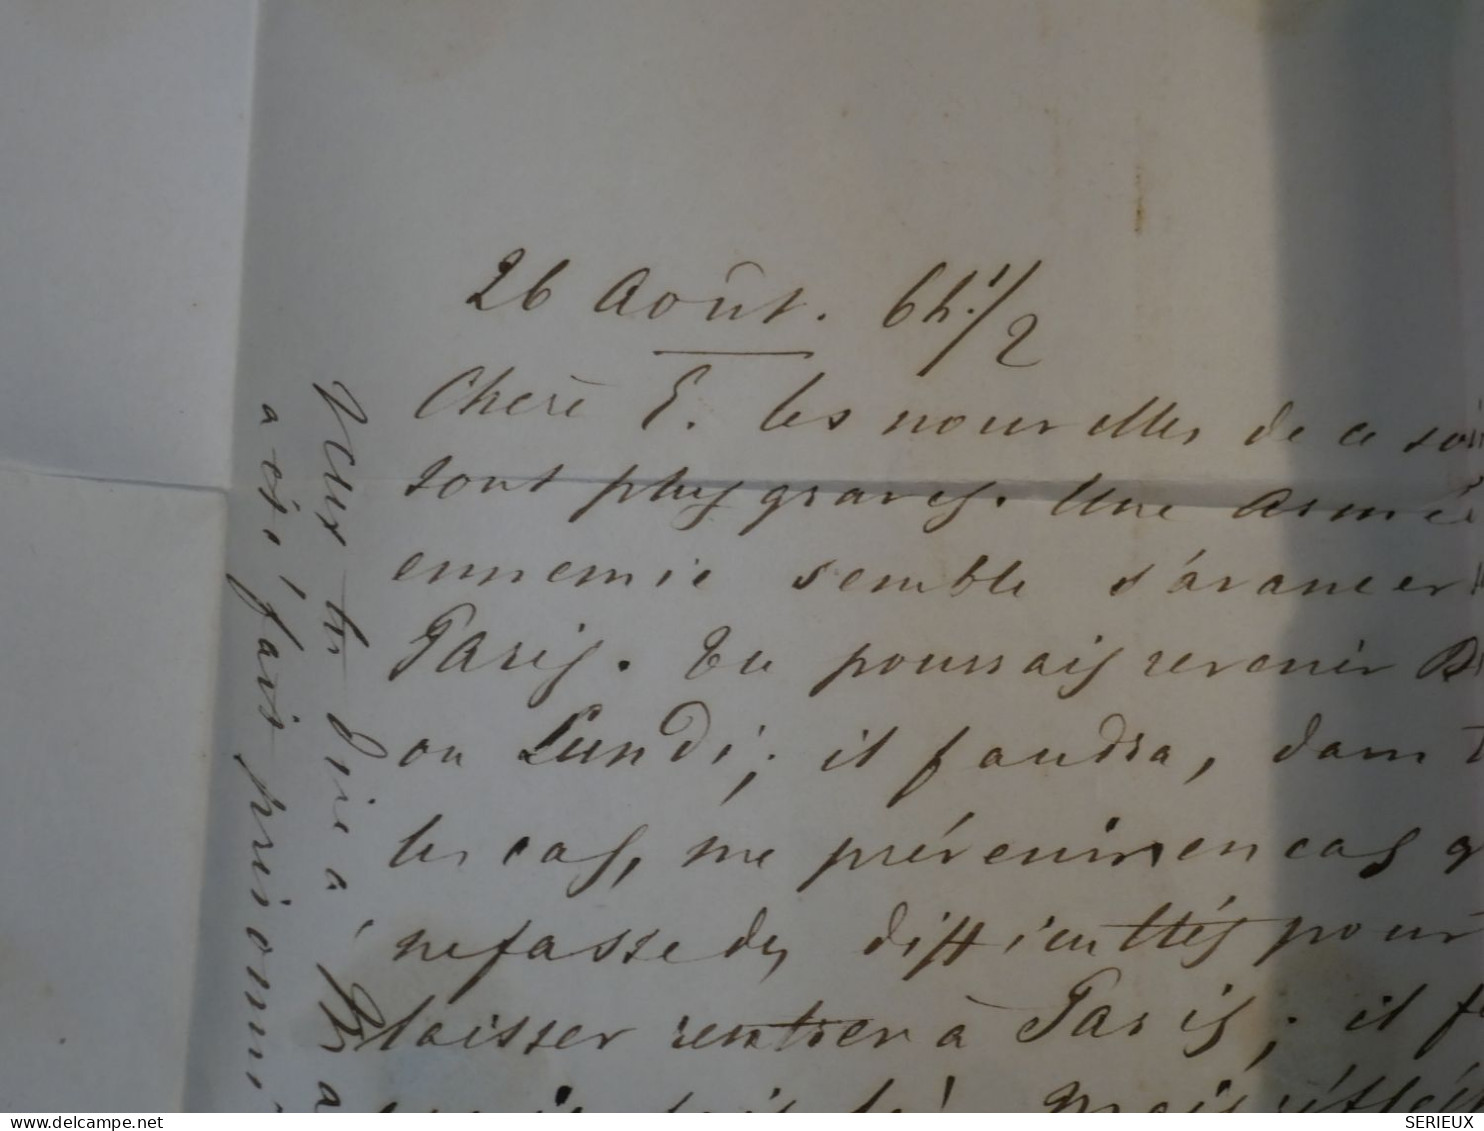 26 Août. 6h. 1/2
Chère E. les nouvelles de ce soi
sont plus graves. Une armé
ennemie semble s'avancer
Paris. Tu pourrais revenir Di
ou Lundi; il faudra, dans t
les cas, me prévenir en cas q
ne fasse des difficultés pour
laisser rentrer à Paris; il f
Mais réfléc
a été fait prisonni
SERIEUX